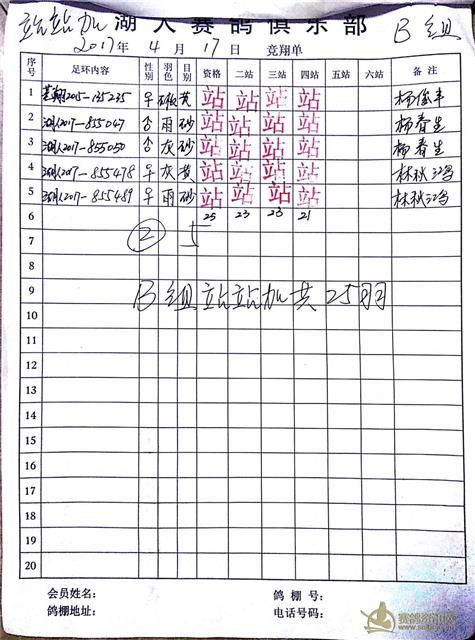 站站加 湖人赛鸽俱乐部 B组
2017年 4月 17日 竞翔单
序号 足环内容 性别 羽色 目别 资格 二站 三站 四站 五站 六站 备注
1 2015-135235 黄 站 站 站 站
2 2017-855047 雨 砂 站 站 站 站 杨春生
3 2017-855050 灰 砂 站 站 站 站 杨春生
4 2017-855478 灰 黄 站 站 站 站 林秋
5 2017-855489 雨 砂 站 站 站 站 林秋
6 25 23 23 21
7 ② 5
8
9 B组站站加共25羽
10
11
12
13
14
15
16
17
18
19
20
会员姓名: 鸽棚号:
鸽棚地址: 电话号码: